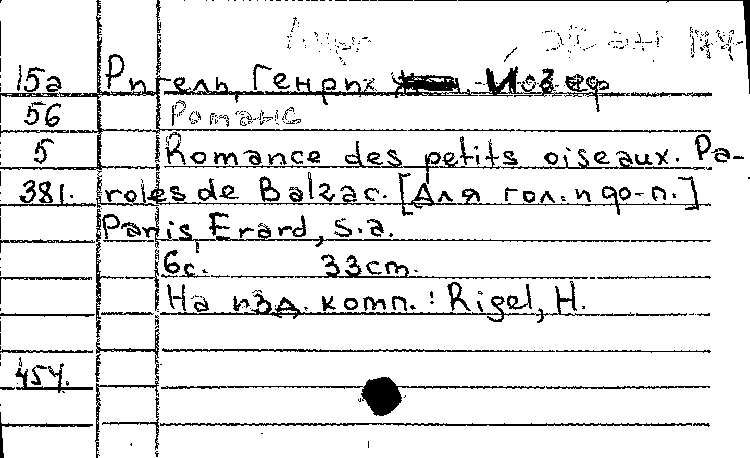 15а Ригель, Генрих Йозеф
56 Романс
5 Romance des petits oiseaux. Pa-
381. roles de Balzac. [Для гол. и ф-п.]
Paris, Erard, s.a.
6с. 33cm.
На изд. комп.: Rigel, H.
454.